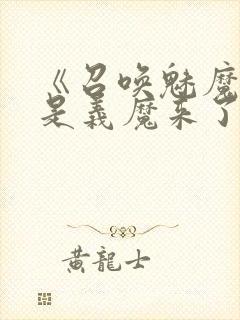 《召唤魅魔
是義魔来了
黄龍士